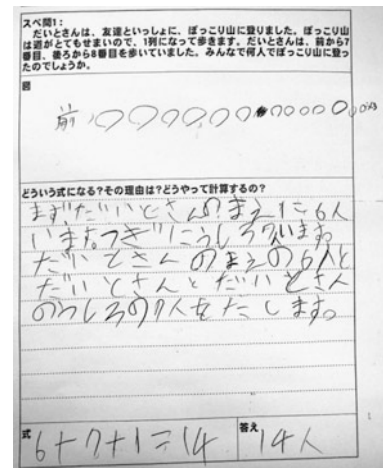 スペ問1：
だいとさんは、友達といっしょに、ぽっこり山に登りました。ぽっこり山
は道がとてもせまいので、1列になって歩きます。だいとさんは、前から7
番目、後ろから8番目を歩いていました。みんなで何人でぽっこり山に登っ
たのでしょうか。
図
前
どういう式になる？その理由は？どうやって計算するの？
まず、だいとさんのまえに6人
います。つぎにうしろ7人います。
だいとさんのまえの6人と
だいとさんとだいとさん
のうしろの7人をたします。
式 答え
6+7+1=14 14人